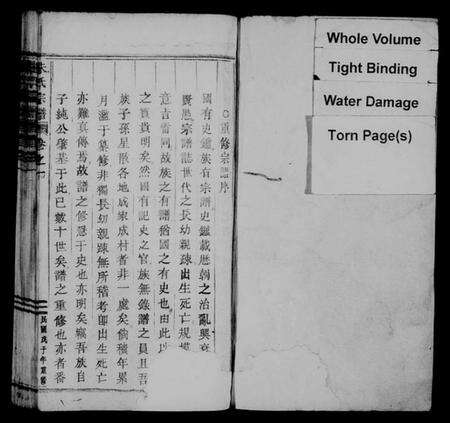 ○重修宗譜序
國有史鑑族有宗譜史鑑載歷朝之治亂興衰
賢愚宗譜誌世代之長幼親疎出生死亡規模
意吉凿同故族之有譜猶國之有史也由此
之貴貴明矣然國有記史之官族無錄譜之員且吾
族子孫星散各地成家成村者非一處矣倘積年累
月濫于纂修非獨長幼親疎無所稽考卽出生死亡
亦難真傳焉故譜之修急于史也亦明矣竊吾族自
子純公肇基于此已數十世矣譜之重修也亦者番
氏宗譜
卷之一
民國戊子年重修
Whole Volume
Tight Binding
Water Damage
Torn Page(s)